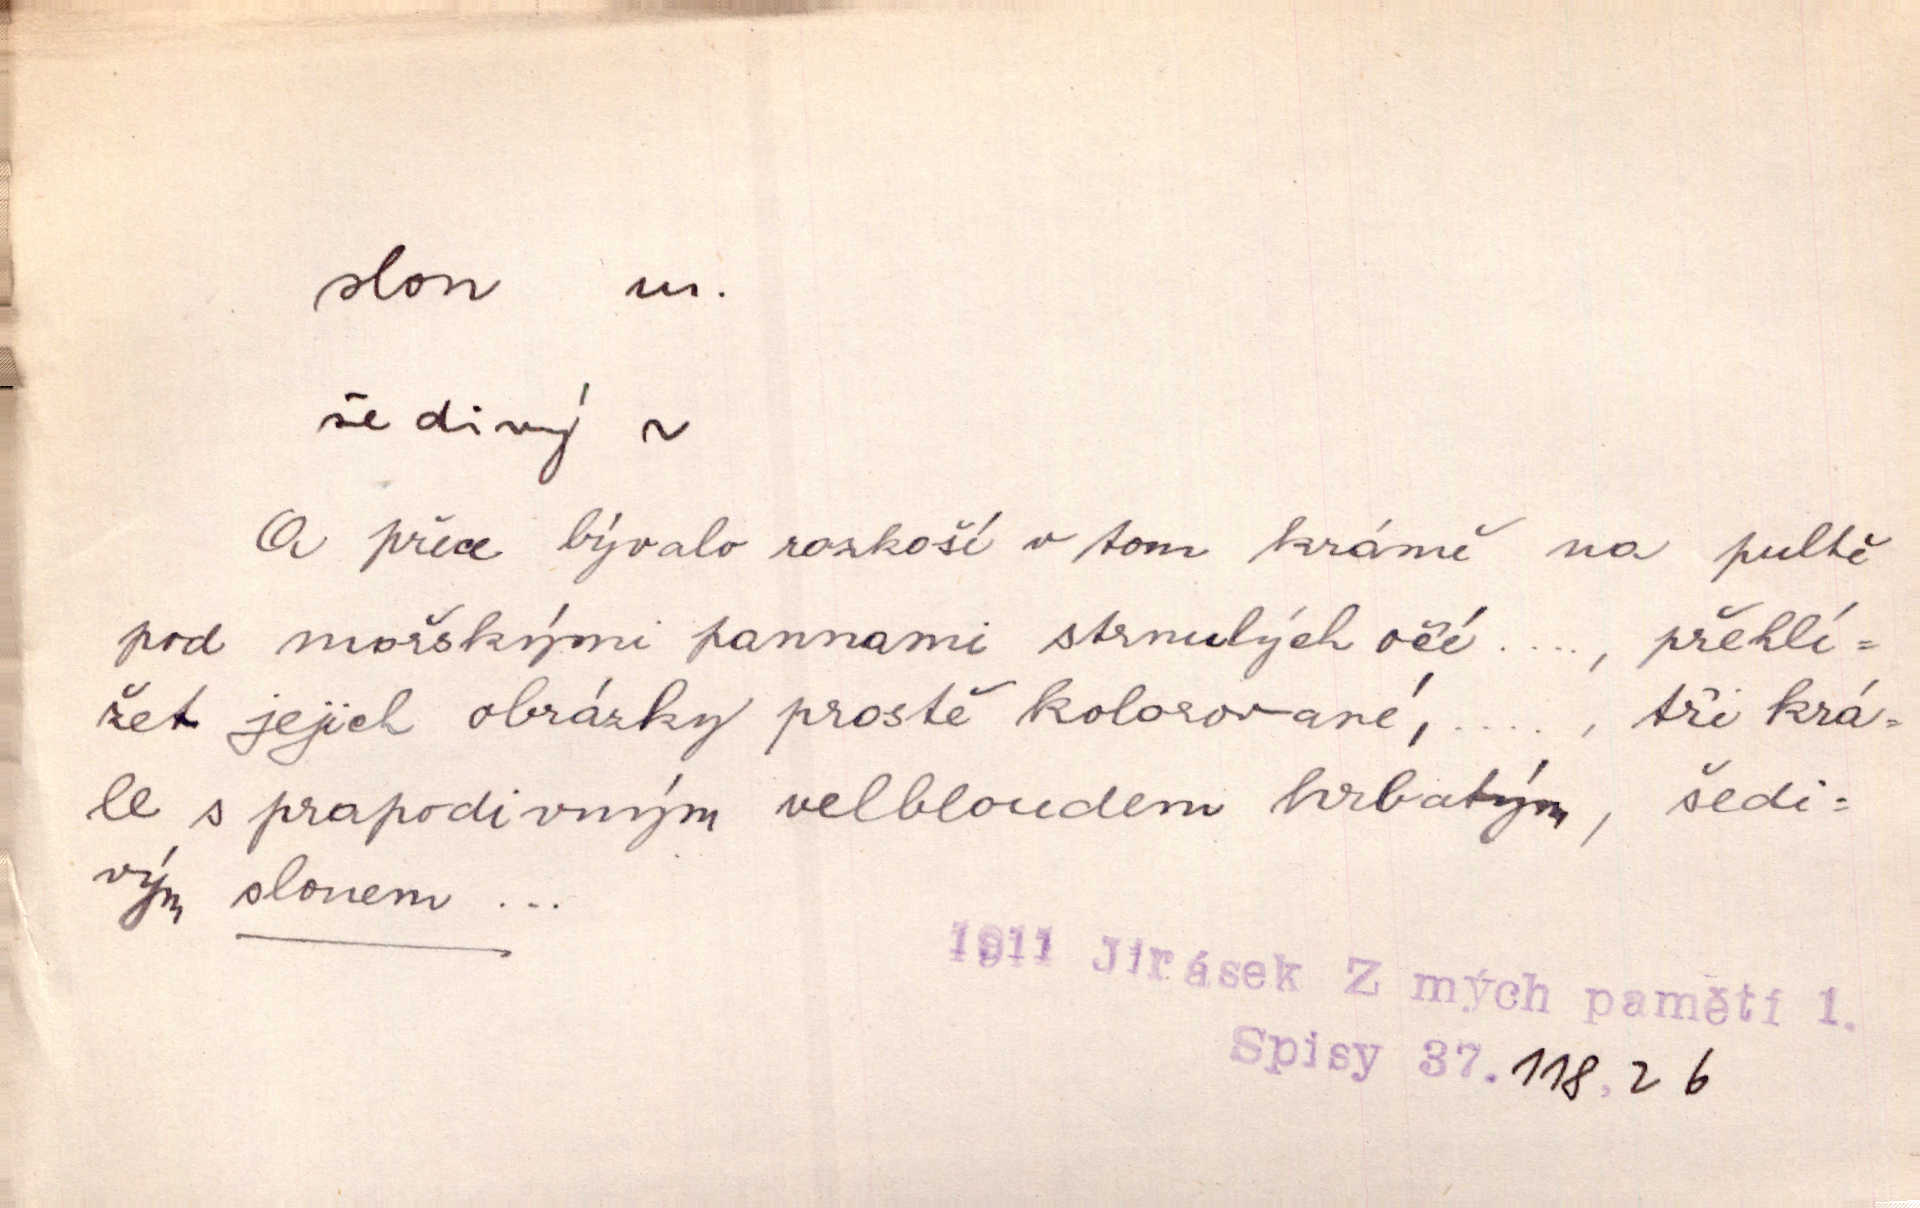 slon m.
šedivý ~
A přece bývalo rozkoší v tom krámě na pultě
pod mořskými pannami strnulých očí ...., přehlí=
žet jejich obrázky prostě kolorované, ...., tři krá=
le s prapodivným velbloudem hrbatým, šedi=
vým slonem ...
1911 Jirásek Z mých pamětí 1.
Spisy 37. 118, 26